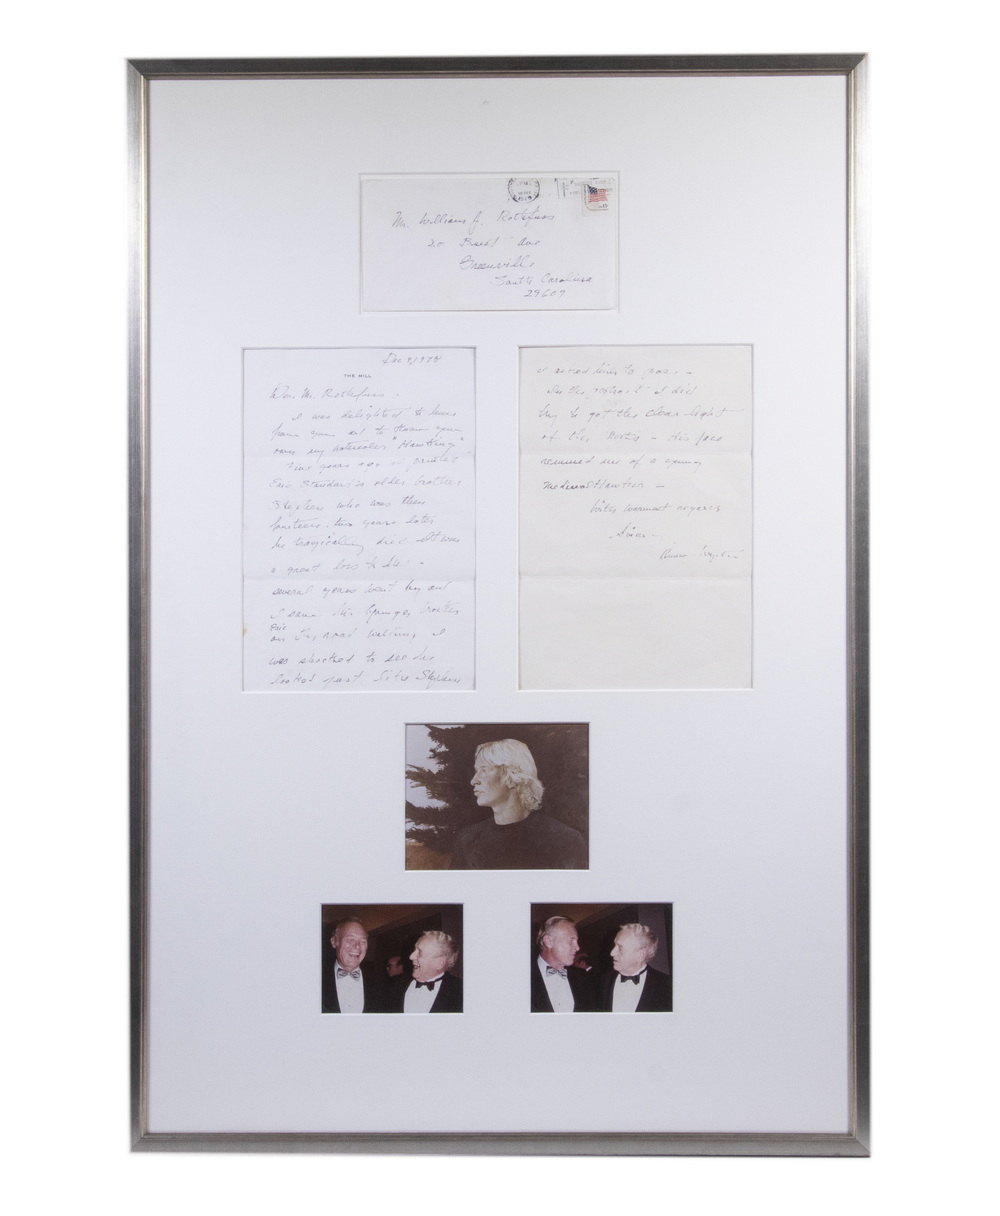 Mr. William J. Rothfuss
20 Buist Ave
Greenville
South Carolina
29609
Dec 9, 1978
THE MILL
Dear Mr. Rothfuss.
I was delighted to hear
from you and to know you
own my watercolor "Hawking"
years ago I painted
Eric Standard's older brother
Stephen who was then
fourteen. two years later
he tragically died it was
a great loss to me -
several years went by and
I saw his younger brother
Eric
on the road walking I
was shocked to see he
looked just like Stephen
I asked him to pose -
In the portrait I did
try to get the clear light
of the North - His face
reminded me of a young
Medieval Hawker -
With warmest regards
Andrew Wyeth